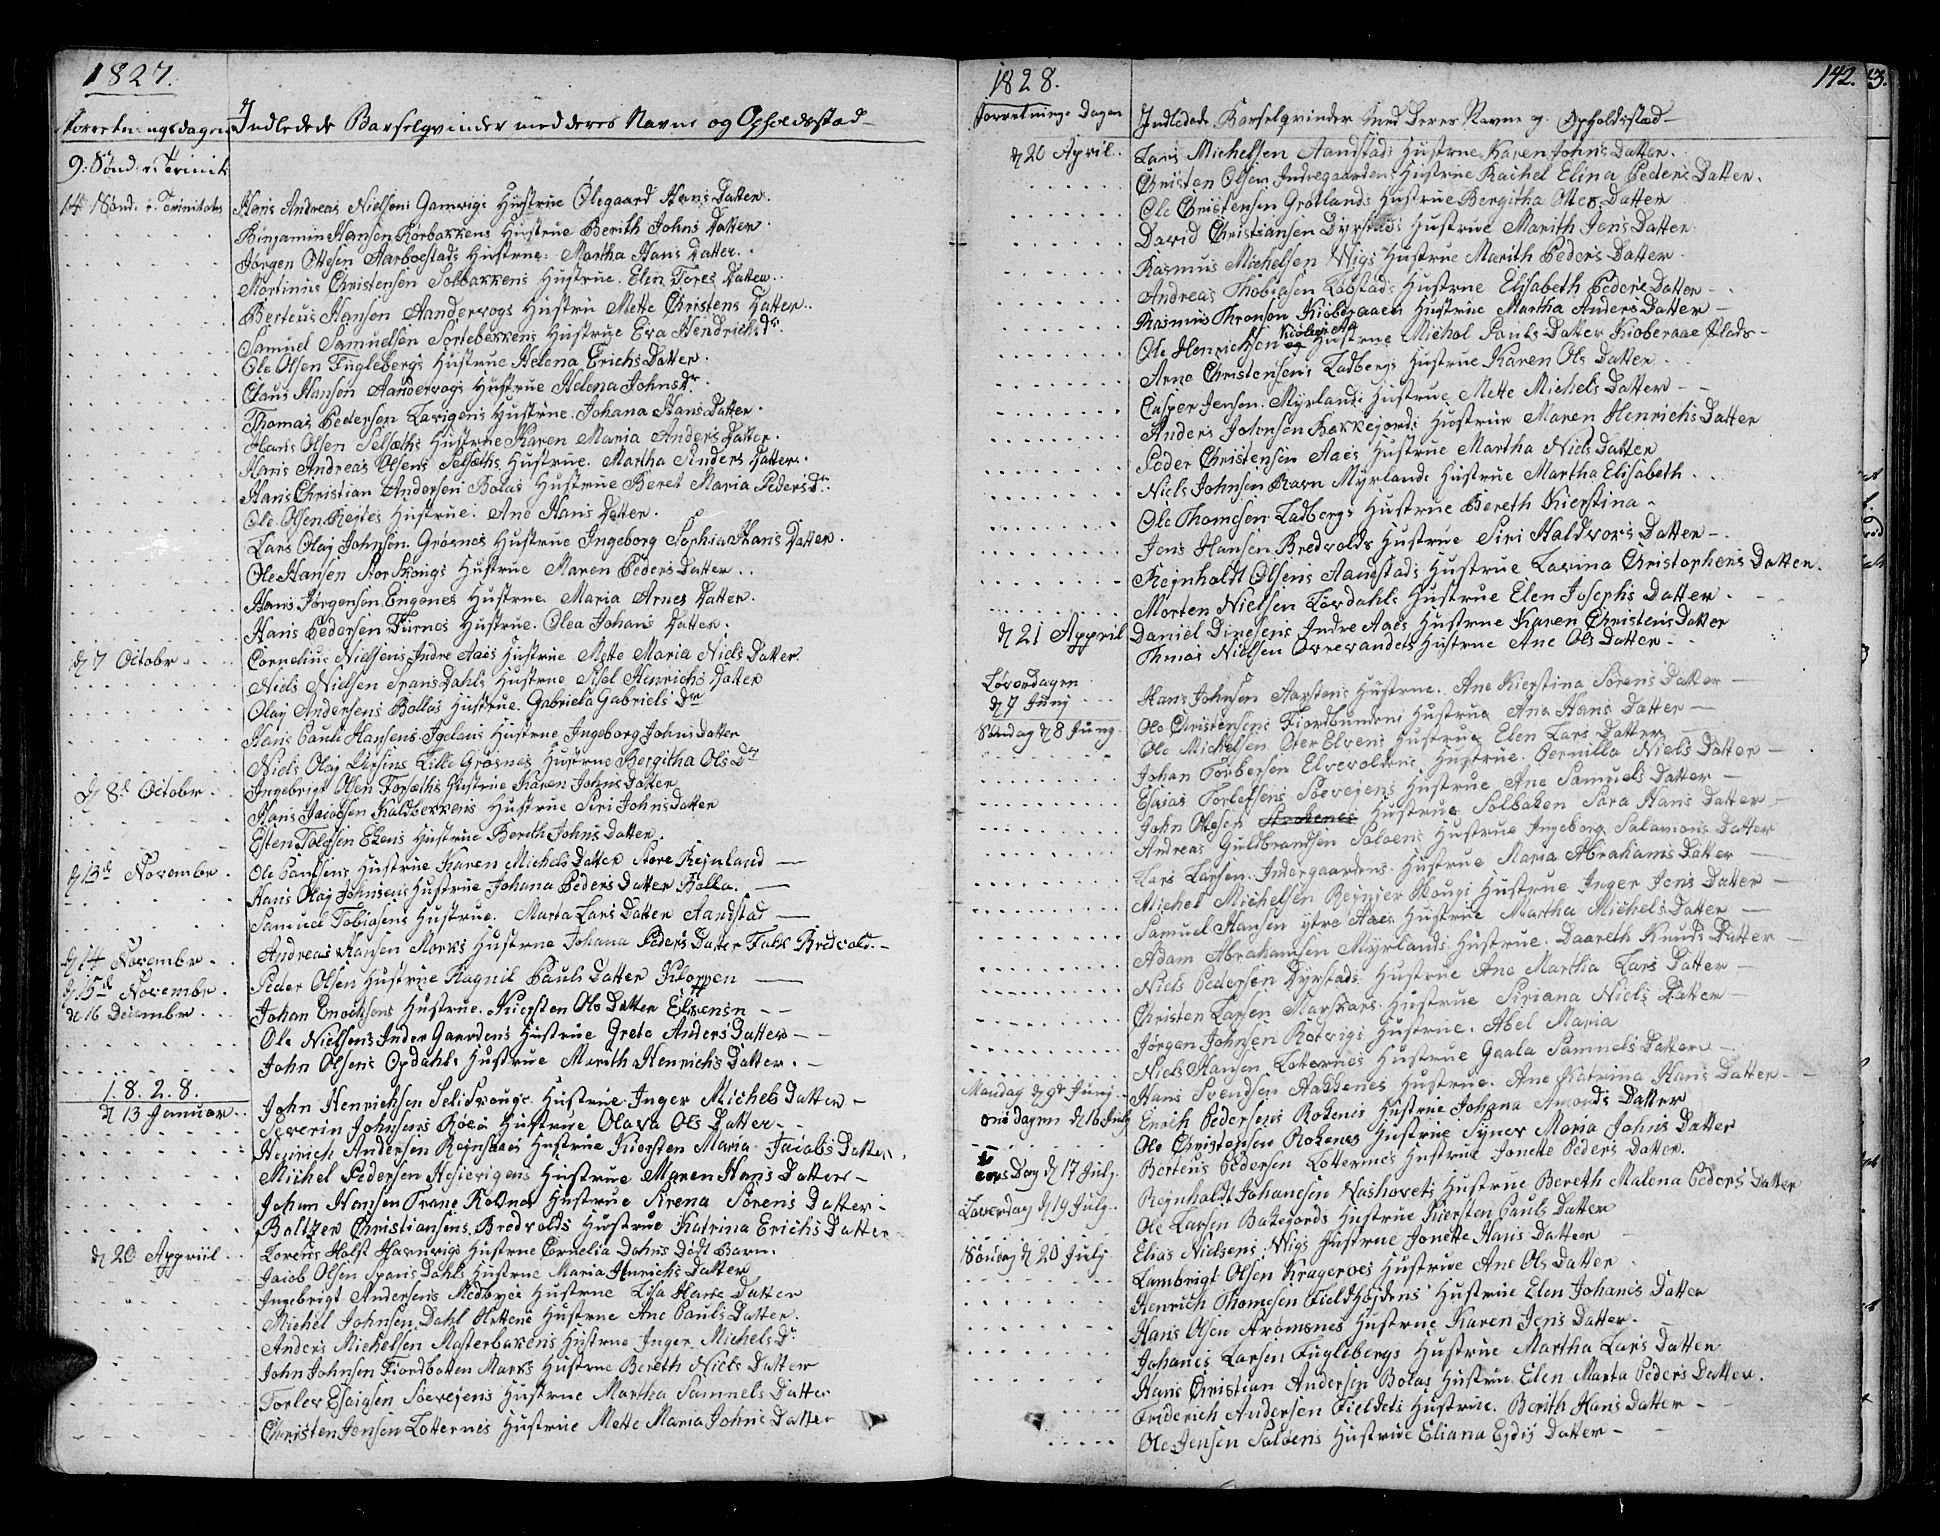 1827.
Forretningsdagen Indledede Barselqvinder med deres Navne og Opholdsstad
9. Sønd: e: Trinit:
14 Sønd. e. Trinitatis Hans Andreas Nielsens Gamvigs Hustrue Ølegaard Hans Datter.
Binjamin Hansen Rørbakkens Hustrue Berith Johns Datter
Jørgen Ottesen Aarboestads Hustrue. Martha Hans Datter.
Mortinus Christensen Solbakkens Hustrue. Elen Tores Datter.
Berteus Hansen Aandervogs Hustru Mette Christens Datter.
Samuel Samuelsen Sortebekkens Hustrue Eva Hendrichs Dr.
Ole Olsen Fuglebergs Hustrue Helena Erichs Datter.
Claus Hansen Aandervogs Hustrue Helena Johns Dr.
Thomas Pedersen Lavigens Hustrue. Johana Hans Datter.
Hans Olsen Selsæths Hustrue Karen Maria Anders Datter.
Hans Andreas Olsens Selsæths Hustrue. Martha Sinders Datter.
Hans Christian Andersen Bolas Hustrue Beret Maria Peders Dr.
Ole Olsen Rejtes Hustrue. Ane Hans Datter.
Lars Olaj Johnsen. Grøsnes Hustrue Ingeborg Sophia Hans Datter.
Ole Hansen Storskougs Hustrue Maren Peders Datter.
Hans Jørgensen Engenes Hustrue Maria Arnes Datter.
Hans Pedersen Furnes Hustrue. Olea Johans Datter.
d 7 Octobr Cornelius Nielsens Indre Aaes Hustrue Mette Maria Niels Datter
Niels Nielsen SpansDahls Hustrue Sisel Henrichs Datter
Olaj Andersens Bollas Hustrue. Gabriela Gabriels Dr
Hans Pauli Hansens Hustrue Ingeborg Johns Datter
Niels Olaj Lille Grøsnes Hustrue Bergitha Ols Dr
d 8d Octobr. Ingebrigt Olsen Forsæths Hustrue Karen Johns Datter
Hans Jacobsen Kaldbekkens Hustrue Siri Johns Datter
Esten Tolosen Ekens Hustrue Berith Johns Datter.
d 13d Novembr. Ole Paulsens Hustrue Karen Michels Datter Store Rejnland
Hans Olaj Johnsens Hustrue Johana Peders Datter Bolla.
Samuel Tobiasens Hustrue. Marta Lars Datter Aandstad
d 14 Novembr. Andreas Hansen Morks Hustrue Johana Peders Datter Bredvold.
d 15d Novembr. Peder Olsen Hustrue Ragnil Pauls Datter Kloppen
d 16 Decembr. Johan Enochsens Hustrue. Kiersten Ols Datter Elvensn
Ole Nielsens Inder Gaardens Hustrue Grete Anders Datter
John Olsens Opdahls Hustrue Merith Henrichs Datter.
1.8.2.8.
d 13 Januar. John Henrichsen Selidkougs Hustrue Inger Michels Datter
Severin Johnsens Røese Hustrue Olava Ols Datter
Heinrich Andersen Rejnskaei Hustrue Kiersten Maria Jacobs Datter.
Michel Pedersen Hesjevigens Hustrue Maren Hans Datter
Johan Hansen Trane Roknes Hustrue Sirena Sørens Datter
Baltzer Christiansens Bredvolds Hustrue Katrina Erichs Datter
d 20 Appriil Lorents Holst Havnvigs Hustrue Cornelia Dahns Dødt Barn.
Jacob Olsen SpansDahls Hustrue Maria Henrichs Datter
Ingebrigt Andersens Medbyes Hustrue Lisa Hans Datter
Michel Johnsen Dahl Slettens Hustrue Ane Pauls Datter.
Anders Michelsen Masterbakens Hustrue Inger Michels Dr
John Johnsen Fiordbotten Marks Hustrue Bereth Niels Datter
Torlev Esaisen Søevejens Hustrue Martha Samuels Datter
Christen Jensen Lotternes Hustrue Mette Maria Johns Datter
1828. 142.
Forretnings Dagen Indledede Barselqvinder Med Deres Navne og Opholdsstad
d 20 April. Lars Michelsen Aandstads Hustrue Karen Johns Datter.
Christen Olsen Indregaardens Hustrue Rachel Elina Peders Datter.
Ole Christensen Grøtlands Hustrue Bergitha Ottes Datter
David Christiansen Dyrstads Hustrue Marith Jens Datter
Rasmus Michelsen Wigs Hustrue Marith Peders Datter.
Andreas Thobiasen Løbstads Hustrue Elisabeth Peders Datter
Rasmus Thronson Kioberaaen Hustrue Martha Anders Datter
Ole Henrichsen Hustrue Michal Pauls Datter Kioberaae Plads
Arne Christensens Ladbergs Hustrue Karen Ols Datter
Casper Jenson. Myrlands Hustrue Mette Michels Datter
Anders Johnsen Bakkejords Hustrue Maren Henrichs Datter
Peder Christensen Aaes Hustrue Martha Niels Datter
Niels Johnsen Ravn Myrlands Hustrue Martha Elisabeth
Ole Thomesen Ladbergs Hustrue Bereth Kierstina
Jens Hansen Bredvolds Hustrue Siri Haldvors Datter
Rejnholdt Olsens Aandstads Hustrue Lavina Christophers Datter.
Morten Nielsen Løvdahls Hustrue Elen Josephs Datter
d 21 Appriil Daniel Dinesens Indre Aaes Hustrue Karen Christens Datter
Thmas Nielsen Øvrevandets Hustrue Ane Ols Datter
Løverdagen
d 7 Junj Hans Johnsen Aarstens Hustrue. Ane Kierstina Sørens Datter
Ole Christensens Fiordbundens Hustrue Ana Hans Datter
Søndag d 8 Juny. Ole Michelsen Oter Elvens Hustrue Elen Lars Datter
Johan Torbersen Elvevoldens Hustrue. Pernilla Niels Datter
Esaias Torlefsens Søevejens Hustrue Ane Samuels Datter
John Otesen Hustrue Solbaken Sara Hans Datter
Andreas Guldbrandsen Saloens Hustrue Ingeborg Salamons Datter
Lars Larsen. Indergaardens. Hustrue Maria Abrahams Datter
Michel Michelsen Rejnjer Skougs Hustrue Inger Jens Datter
Samuel Hansen ytre Aaes Hustrue Martha Michels Datter
Adam Abrahamsen Myrlands Hustrue. Daareth Knuds Datter
Niels Pedersen Dyrstads Hustrue Ane Martha Lars Datter
Christen Larsen Marskars Hustrue Siriana Niels Datter
Jørgen Johnsen Rotvigs Hustrue. Abel Maria
Niels Hansen Lotternes Hustrue Gaala Samuels Datter
Mandag d 9d Junj Hans Svendsen Aakkenes Hustrue. Ane Katrina Hans Datter
Onsdagen d 16 July Enrih Pedersens Rokenes Hustrue Johana Amonds Datter
Ole Christensen Rokenes Hustrue Synev Maria Johns Datter
Berteus Pedersen Lotternes Hustrue Jonette Peders Datter.
Dag d 17 July. Rejnholdt Johanesen Nashovets Hustrue Bereth Malena Peders Datter
Løverdag d 19 July. Ole Larsen Bakejords Hustrue Kiersten Pauls Datter
Elias Nielsens. Wigs Hustrue Jonette Hans Datter
Søndag d 20 July Lambrigt Olsen Kragerøes Hustrue Ane Ols Datter
Henrich Thomesen Fieldhøjdens Hustrue Elen Johanes Datter
Hans Olsen Arømsnes Hustrue Karen Jens Datter.
Johanes Larsen Fuglebergs Hustrue Martha Lars Datter
Hans Christian Andersen Bolas Hustru Elen Marta Peders Datter.
Friderich Andersen Fieldets Hustrue. Berith Hans Datter
Ole Jensen Saløens Hustrue Eliana Ejdis Datter